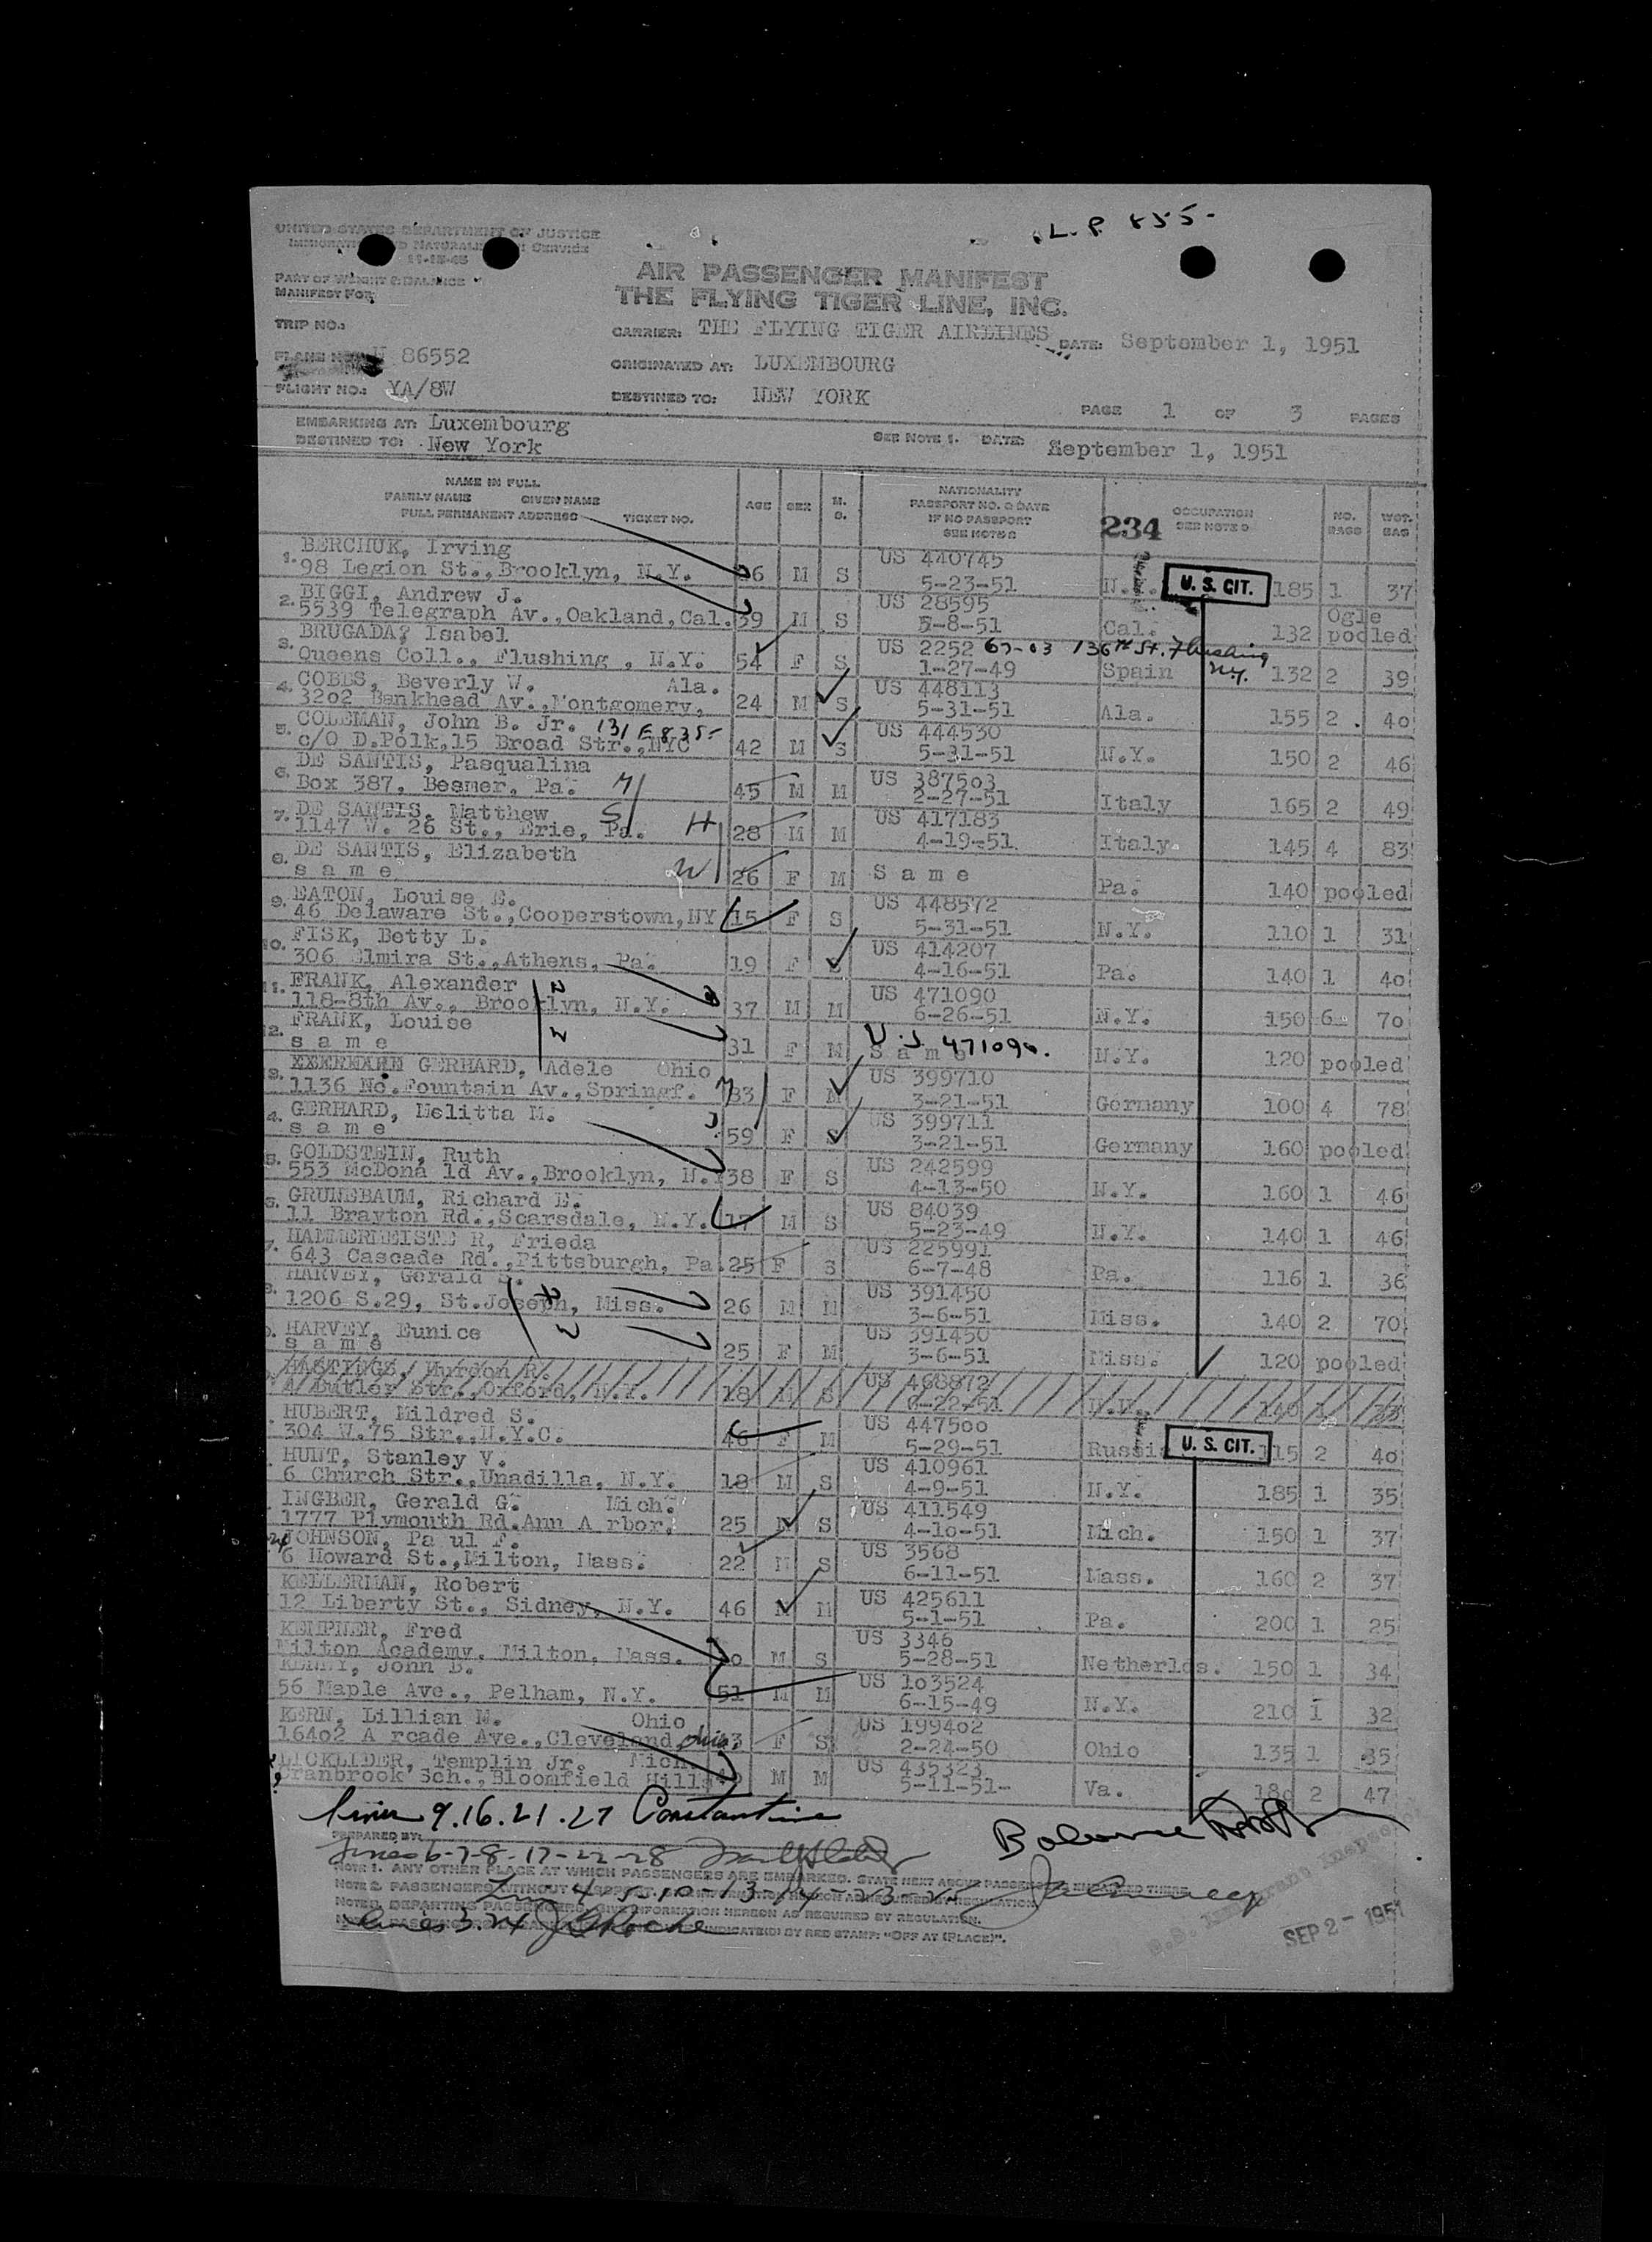 L.P. 855-
UNITED STATES DEPARTMENT OF JUSTICE
IMMIGRATION AND NATURALIZATION SERVICE
11-15-45
PART OF WEIGHT & BALANCE
MANIFEST FOR
AIR PASSENGER MANIFEST
THE FLYING TIGER LINE, INC.
TRIP NO.:
CARRIER: THE FLYING TIGER AIRLINES DATE: September 1, 1951
PLANE NO. N 86552
ORIGINATED AT: LUXEMBOURG
FLIGHT NO.: YA/8W
DESTINED TO: NEW YORK
PAGE 1 OF 3 PAGES
EMBARKING AT: Luxembourg
DESTINED TO: New York SEE NOTE 1. DATE: September 1, 1951
NAME IN FULL
FAMILY NAME GIVEN NAME
FULL PERMANENT ADDRESS TICKET NO.
AGE SEX M. S.
NATIONALITY
PASSPORT NO. & DATE
IF NO PASSPORT
SEE NOTE 2
234 OCCUPATION
SEE NOTE 3
NO. BAGS WGT. BAG
1. BERCHUK, Irving US 440745
98 Legion St., Brooklyn, N.Y. M S 5-23-51 U. S. CIT. 185 1 37
2. BIGGI, Andrew J. US 28595 Ogle
5539 Telegraph Av., Oakland, Cal. 39 M S 5-8-51 Cal. 132 pooled
3. BRUGADA, Isabel US 2252 67-03 136th St. Flushing N.Y.
Queens Coll., Flushing, N.Y. 54 F S 1-27-49 Spain 132 2 39
4. COBBS, Beverly W. Ala. US 448113
3202 Bankhead Av., Montgomery, 24 M S 5-31-51 Ala. 155 2 40
5. COLEMAN, John B. Jr. 131 E 83 St US 444530
c/o D.Polk, 15 Broad Str., NYC 42 M S 5-31-51 N.Y. 150 2 46
6. DE SANTIS, Pasqualina US 387503
Box 387, Besmer, Pa. M 45 M M 2-27-51 Italy 165 2 49
7. DE SANTIS, Matthew S US 417183
1147 W. 26 St., Erie, Pa. H 28 M M 4-19-51 Italy. 145 4 83
8. DE SANTIS, Elizabeth
s a m e W 26 F M S a m e Pa. 140 pooled
9. EATON, Louise E. US 448572
46 Delaware St., Cooperstown, NY 15 F S 5-31-51 N.Y. 110 1 31
10. FISK, Betty L. US 414207
306 Elmira St., Athens, Pa. 19 F S 4-16-51 Pa. 140 1 40
11. FRANK, Alexander US 471090
118-8th Av., Brooklyn, N.Y. 37 M M 6-26-51 N.Y. 150 6 70
12. FRANK, Louise U.S. 471090.
s a m e 31 F M S a m e N.Y. 120 pooled
GERHARD, Adele Ohio US 399710
1136 No.Fountain Av., Springf. M 83 F M 3-21-51 Germany 100 4 78
4. GERHARD, Melitta M. US 399711
s a m e 59 F S 3-21-51 Germany 160 pooled
5. GOLDSTEIN, Ruth US 242599
553 McDona ld Av., Brooklyn, N. 38 F S 4-13-50 N.Y. 160 1 46
GRUNEBAUM, Richard E. US 84039
11 Brayton Rd., Scarsdale, N.Y. 17 M S 5-23-49 N.Y. 140 1 46
7. HAMMERMEISTE R, Frieda US 225991
643 Cascade Rd., Pittsburgh, Pa. 25 F S 6-7-48 Pa. 116 1 36
HARVEY, Gerald S. US 391450
1206 S.29, St.Joseph, Miss. 26 M M 3-6-51 Miss. 140 2 70
HARVEY, Eunice US 391450
s a m e 25 F M 3-6-51 Miss. 120 pooled
HASTINGS, Murdon R. US 468872
4 Butler Str., Oxford, N.Y. 18 M S 6-22-51 N.Y. 140 1 33
HUBERT, Mildred S. US 447500
304 W.75 Str., N.Y.C. 46 F M 5-29-51 Russia U. S. CIT. 115 2 40
HUNT, Stanley V. US 410961
6 Church Str., Unadilla, N.Y. 18 M S 4-9-51 N.Y. 185 1 35
INGBER, Gerald G. Mich. US 411549
1777 Plymouth Rd.Ann A rbor, 25 M S 4-10-51 Mich. 150 1 37
24 JOHNSON, Pa ul F. US 3568
6 Howard St., Milton, Mass. 22 M S 6-11-51 Mass. 160 2 37
KELLERMAN, Robert US 425611
12 Liberty St., Sidney, N.Y. 46 M M 5-1-51 Pa. 200 1 25
KEMPNER, Fred US 3346
Milton Academy, Milton, Mass. M S 5-28-51 Netherlds. 150 1 34
KENNY, John B. US 103524
56 Maple Ave., Pelham, N.Y. 51 M M 6-15-49 N.Y. 210 1 32
KERN, Lillian M. Ohio US 199402
16402 A rcade Ave., Cleveland, Ohio F S 2-24-50 Ohio 135 1 35
LICKLIDER, Templin Jr. Mich. US 435323
Cranbrook Sch., Bloomfield Hills M M 5-11-51- Va. 180 2 47
Lines 9.16.21.27 Constantine
Balance
PREPARED BY:
Lines 6-7-8-17-22-28
NOTE 1. ANY OTHER PLACE AT WHICH PASSENGERS ARE EMBARKED. STATE NEXT ABOVE PASSENGERS EMBARKED THERE.
NOTE 2. PASSENGERS WITHOUT
Lines 4-5-10-13-14-23-25
NOTE 3. DEPARTING PASSENGERS, GIVE INFORMATION HEREON AS REQUIRED BY REGULATION.
Lines 3.24 J Roche
INDICATE(D) BY RED STAMP: "OFF AT (PLACE)".
U.S. Immigrant Inspector
SEP 2 - 1951